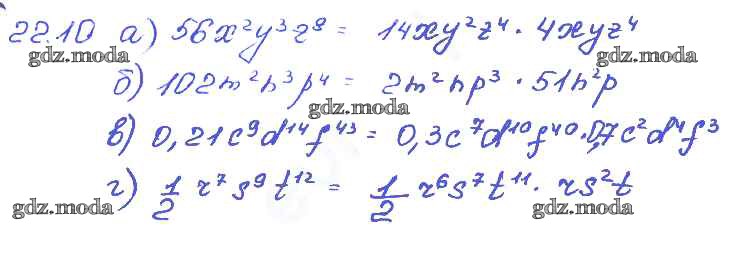 22.10 а) 56x²y³z⁸ = 14xy²z⁴ · 4xyz⁴
gdz.moda gdz.moda
б) 102m²n³p⁴ = 2m²np³ · 51n²p
gdz.moda
в) 0,21c⁹d¹⁴f⁴³ = 0,3c⁷d¹⁰f⁴⁰ · 0,7c²d⁴f³
г) 1/2 r⁷s⁹t¹² = 1/2 r⁶s⁷t¹¹ · rs²t
gdz.moda gdz.moda